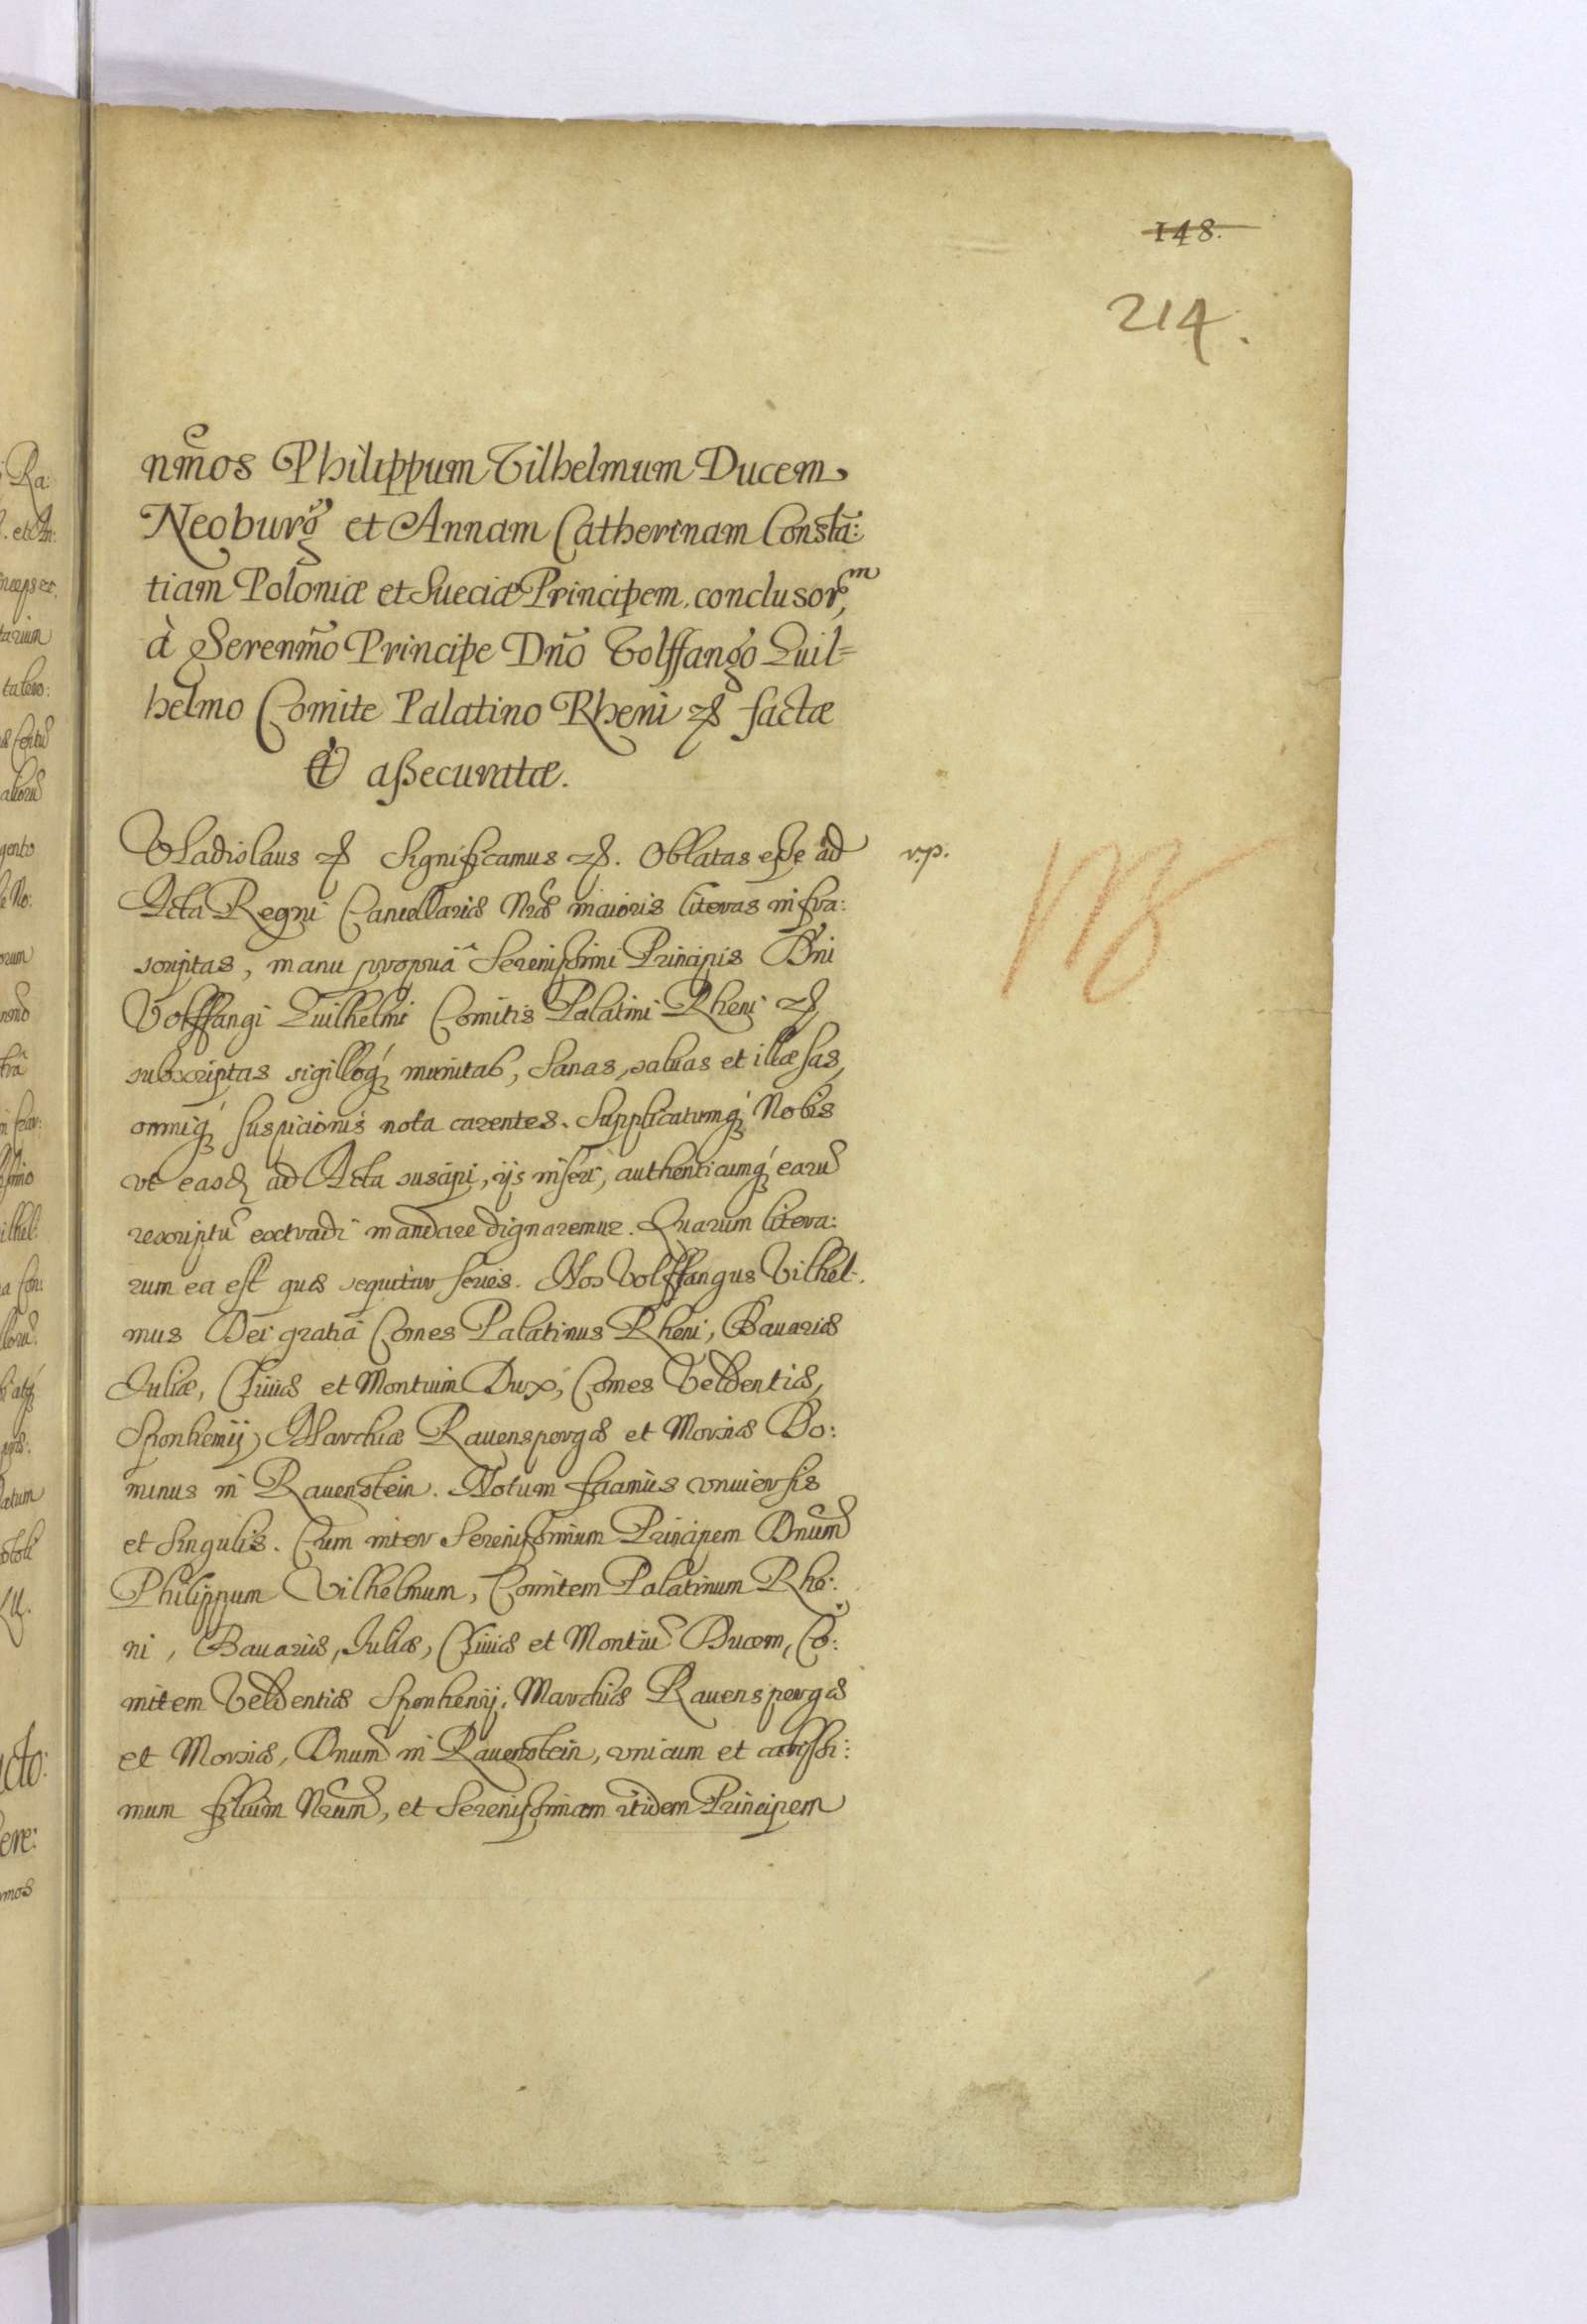 148.
214.
nm̃os Philippum Vilhelmum Ducem
Neoburg̃ et Annam Catherinam Constã:
tiam Poloniæ et Sueciæ Principem, conclusorͫ,
à Serenm̃o Principe Dño Volffango Guil=
helmo Comite Palatino Rheni etc. factæ
et assecuratæ.
Vladislaus etc. Significamus etc. Oblatas esse ad
v.p.
Acta Regni Cancellariæ Nræ maioris literas infra:
scriptas, manu propriâ Serenissimi Principis Dñi
Volffangi Guilhelmi Comitis Palatini Rheni etc.
subscriptas sigilloq́ munitas, sanas, saluas et illæsas,
omniq́ suspicionis nota carentes. Supplicatumq́ Nobis
vt easd. ad Acta suscipi, ijs inseri, authenticumq́ earũ
rescriptũ extradi mandare dignaremur. Quarum litera:
rum ea est quæ sequitur series. Nos Volffangus Vilhel:
mus Dei gratiâ Comes Palatinus Rheni, Bauariæ
Iuliæ, Cliuiæ et Montium Dux, Comes Veldentiæ,
Sponhemij Marchiæ Rauenspergæ et Morsiæ Do:
minus in Rauenstein. Notum facimus vniuersis
et singulis. Cum inter Serenissimum Principem Dnum̃
Philippum Vilhelmum, Comitem Palatinum Rhe:
ni, Bauariæ, Iuliæ, Cliuiæ et Montiũ Ducem, Co:
mitem Veldentiæ Sponhemij, Marchiæ Rauenspergæ
et Morsiæ, Dnum̃ in Rauenstein, vnicum et carissi:
mum filium Nrum̃, et Serenissimam itidem Principem